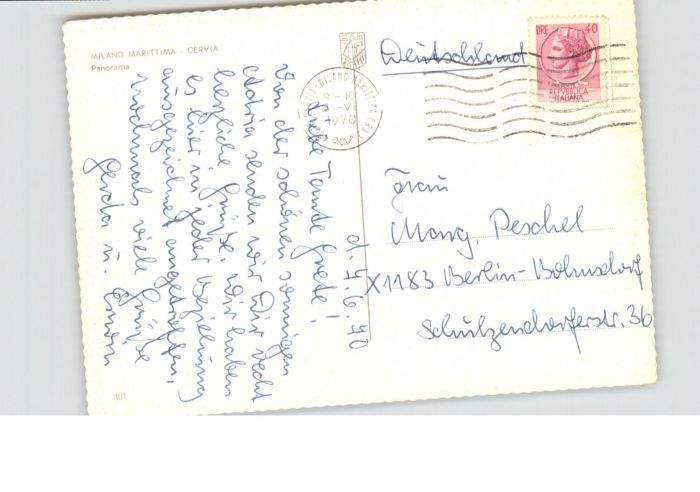 MILANO MARITTIMA - CERVIA
Panorama
d. 7.6.70
Liebe Tante Grete!
Von der schönen sonnigen
Adria senden wir Dir recht
herzliche Grüße. Wir haben
es hier in jeder Beziehung
ausgezeichnet angetroffen.
Nochmals viele Grüße
Gerda u.
301
Deutschland
LIRE 40
REPVBBLICA
ITALIANA
MILANO MARITTIMA
1970
Frau
Marg. Peschel
X1183 Berlin-Bohnsdorf
Schulzendorferstr. 36